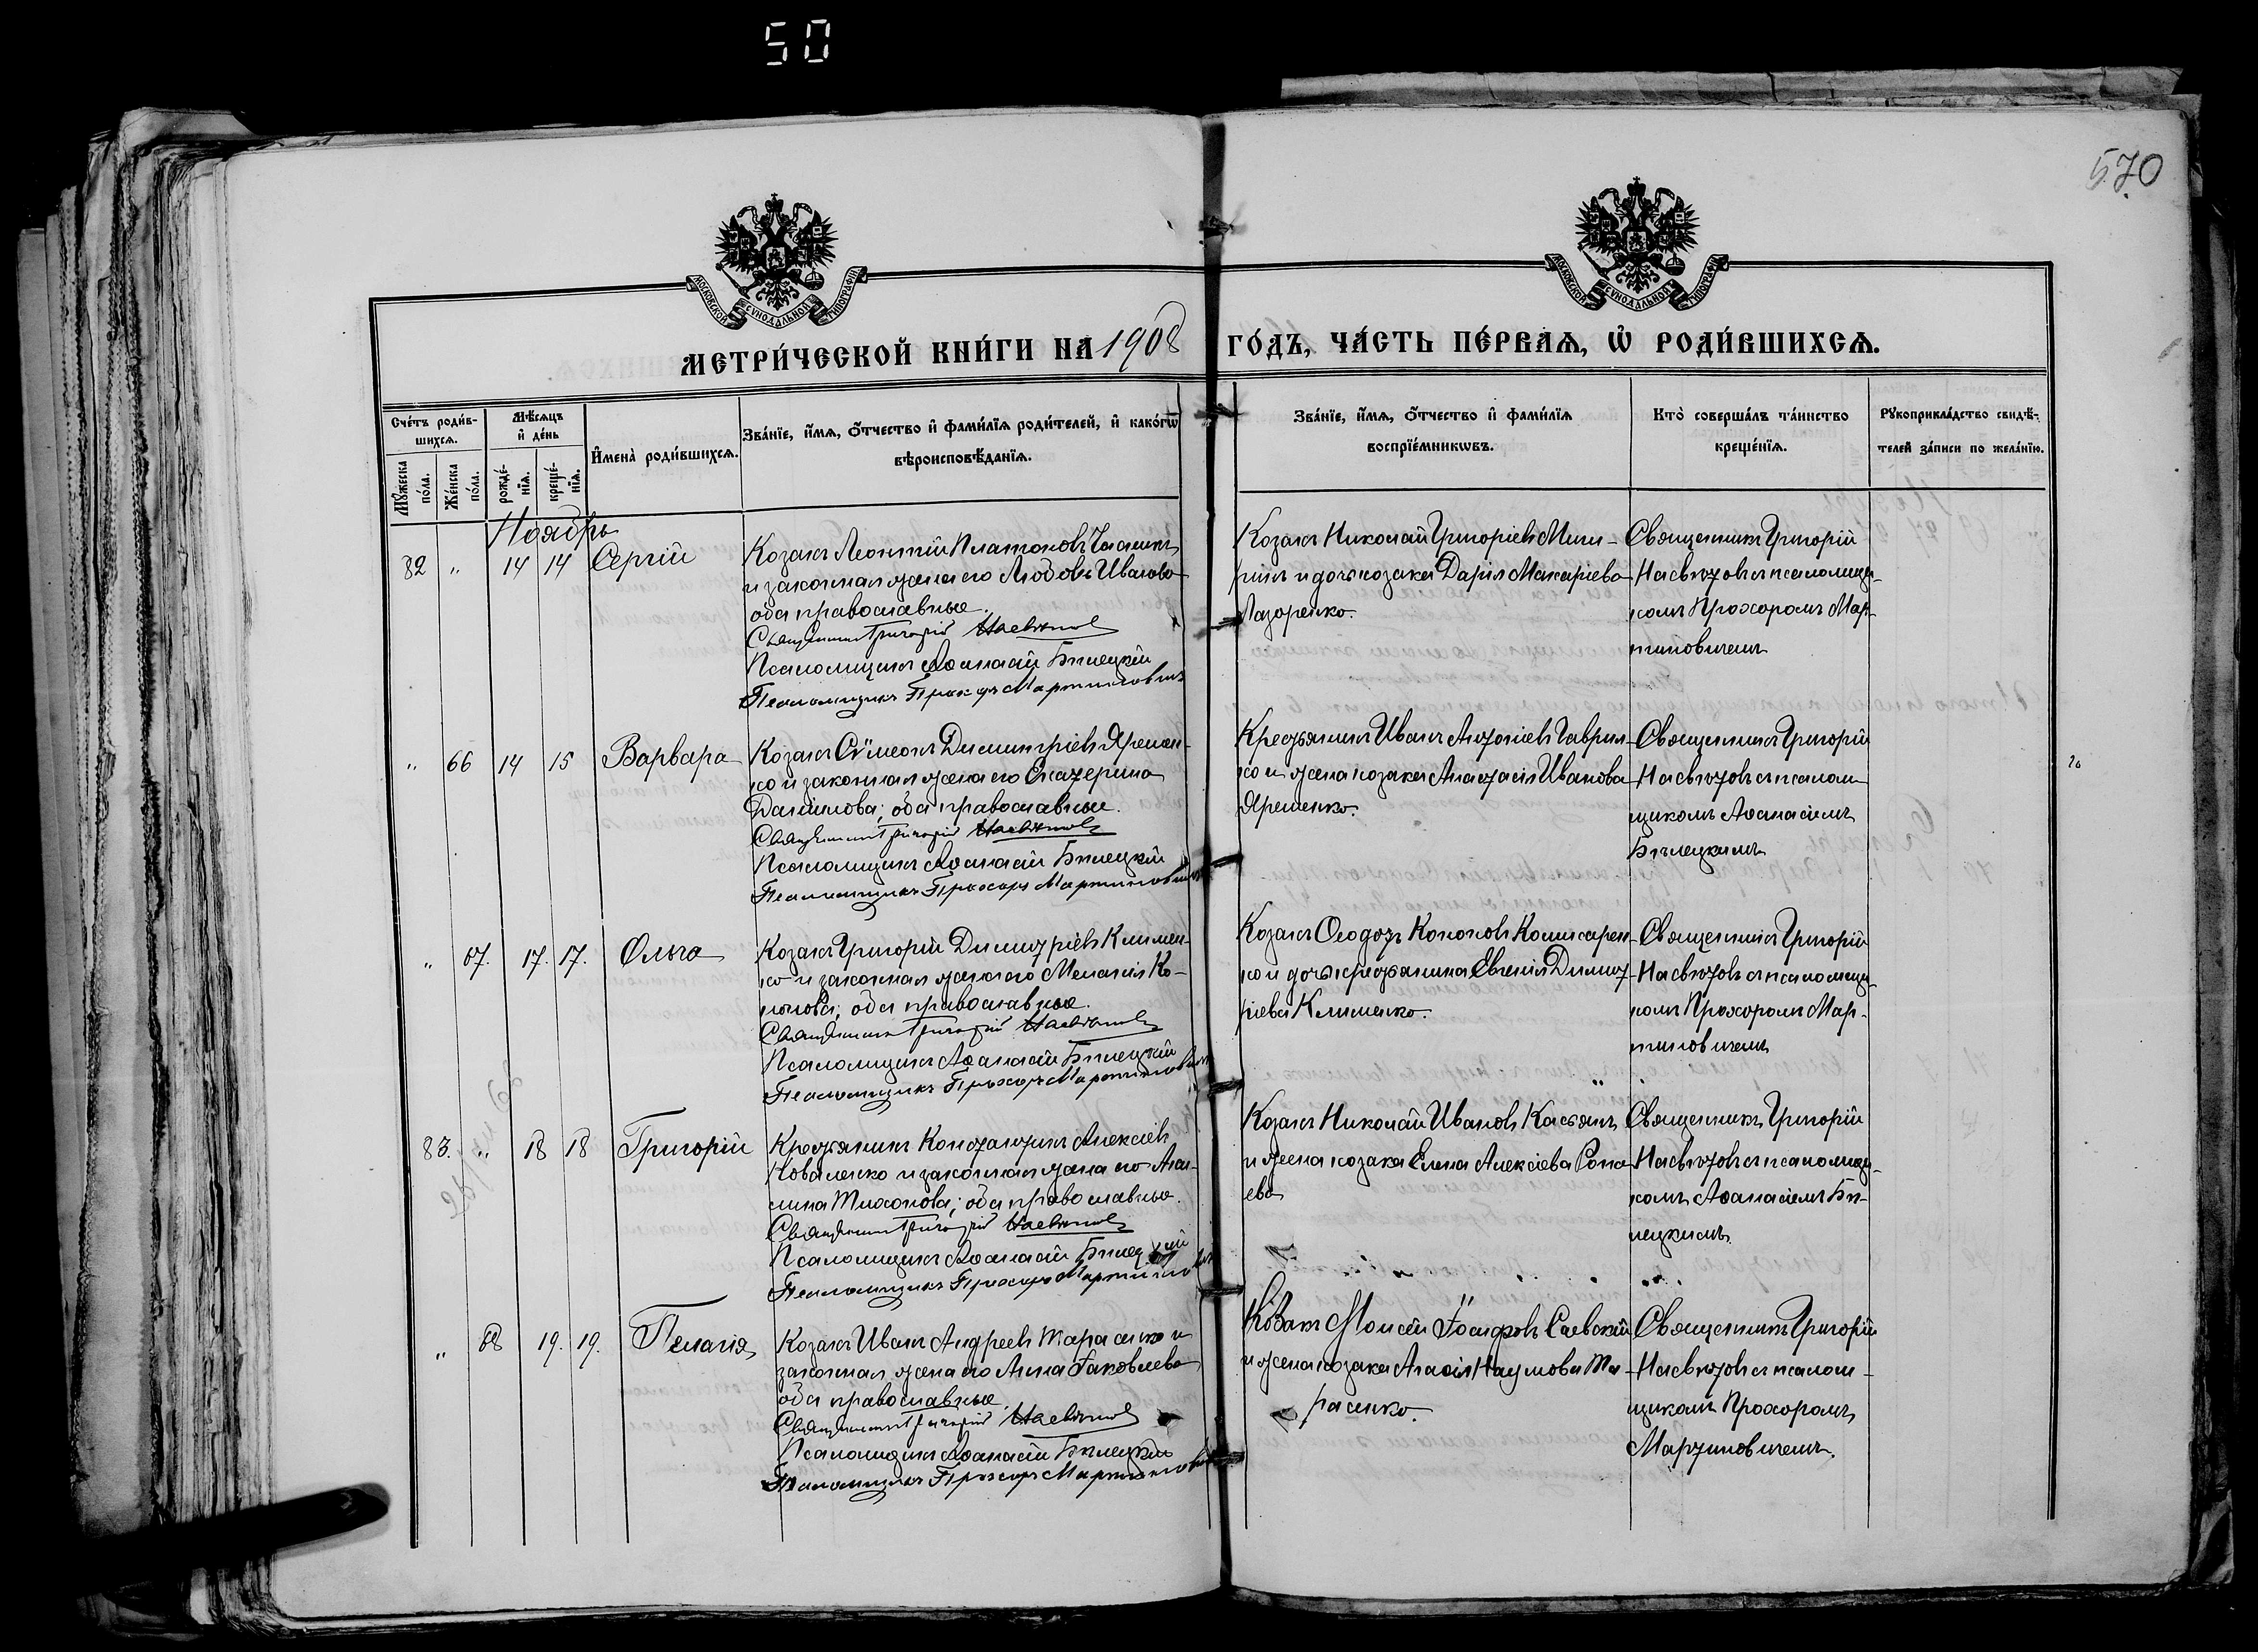 50
570
МОСКОВСКОЙ СѴНОДАЛЬНОЙ ТИПОГРАФІИ
МОСКОВСКОЙ СѴНОДАЛЬНОЙ ТИПОГРАФІИ
МЕТРИ́ЧЕСКОЙ КНИ́ГИ НА 1908 ГО́ДЪ, ЧА́СТЬ ПЕ́РВАѦ, Ѡ҆ РОДИ́ВШИХСѦ.
Сче́тъ роди́в-
шихсѧ.
Мꙋ́жеска
по́ла.
Же́нска
по́ла.
Мѣ́сѧцъ
и҆ де́нь
рожде́-
нїѧ.
креще́-
нїѧ.
И҆мена̀ роди́вшихсѧ.
Зва́нїе, и҆́мѧ, ѻ҆́тчество и҆ фами́лїѧ роди́телей, и҆ како́гѡ
вѣроисповѣ́данїѧ.
Зва́нїе, и҆́мѧ, ѻ҆́тчество и҆ фами́лїѧ
воспрїе́мникѡвъ.
Кто̀ соверша́лъ та́инство
креще́нїѧ.
Рꙋкоприкла́дство свидѣ́-
телей за́писи по жела́нїю.
Ноябрь
82 " 14 14 Сергій
Козакъ Леонтій Платоновъ
и законная жена его Любовь Иванова
оба православные.
Священникъ Григорій
Псаломщикъ Аѳанасій Бѣлецкій
Псаломщикъ Прохоръ Мартиновичъ
Козакъ Николай Григоріевъ Миги-
ринъ и дочь козака Дарія Макаріева
Лазоренко.
Священникъ Григорій
Насвѣтовъ съ псаломщи-
комъ Прохоромъ Мар-
тиновичемъ
" 66 14 15 Варвара
Козакъ Сѵмеонъ Димитріевъ Яремен-
ко и законная жена его Екатерина
Даніилова; оба православные.
Священникъ Григорій
Псаломщикъ Аѳанасій Бѣлецкій
Псаломщикъ Прохоръ Мартиновичъ
Крестьянинъ Иванъ Антоніевъ Гаврил-
ко и жена козака Анастасія Иванова
Яременко.
Священникъ Григорій
Насвѣтовъ съ псалом-
щикомъ Аѳанасіемъ
Бѣлецкимъ
" 67. 17. 17. Ольга
Козакъ Григорій Димитріевъ Климен-
ко и законная жена его Меланія Ко-
нонова; оба православные.
Священникъ Григорій
Псаломщикъ Аѳанасій Бѣлецкій
Псаломщикъ Прохоръ Мартиновичъ
Козакъ Ѳеодотъ Кононовъ Комисарен-
ко и дочь крестьянина Евгенія Димит-
ріева Клименко.
Священникъ Григорій
Насвѣтовъ съ псаломщи-
комъ Прохоромъ Мар-
тиновичемъ
83. " 18 18 Григорій
Крестьянинъ Константинъ Алексіевъ
Коваленко и законная жена его
Тихонова; оба православные.
Священникъ Григорій
Псаломщикъ Аѳанасій Бѣлецкій
Псаломщикъ Прохоръ Мартиновичъ
Козакъ Николай Ивановъ Касьянъ
и жена козака Елена Алексіева
Священникъ Григорій
Насвѣтовъ съ псаломщи-
комъ Аѳанасіемъ Бѣ-
лецкимъ.
" 68 19. 19. Пелагія
Козакъ Иванъ Андреевъ Тарасенко и
законная жена его Анна Іаковлева
оба православные.
Священникъ Григорій
Псаломщикъ Аѳанасій Бѣлецкій
Псаломщикъ Прохоръ Мартиновичъ
Козакъ Моисей Іосифовъ Саевскій
и жена козака Агафія Наумова Та-
расенко.
Священникъ Григорій
Насвѣтовъ съ псалом-
щикомъ Прохоромъ
Мартиновичемъ.